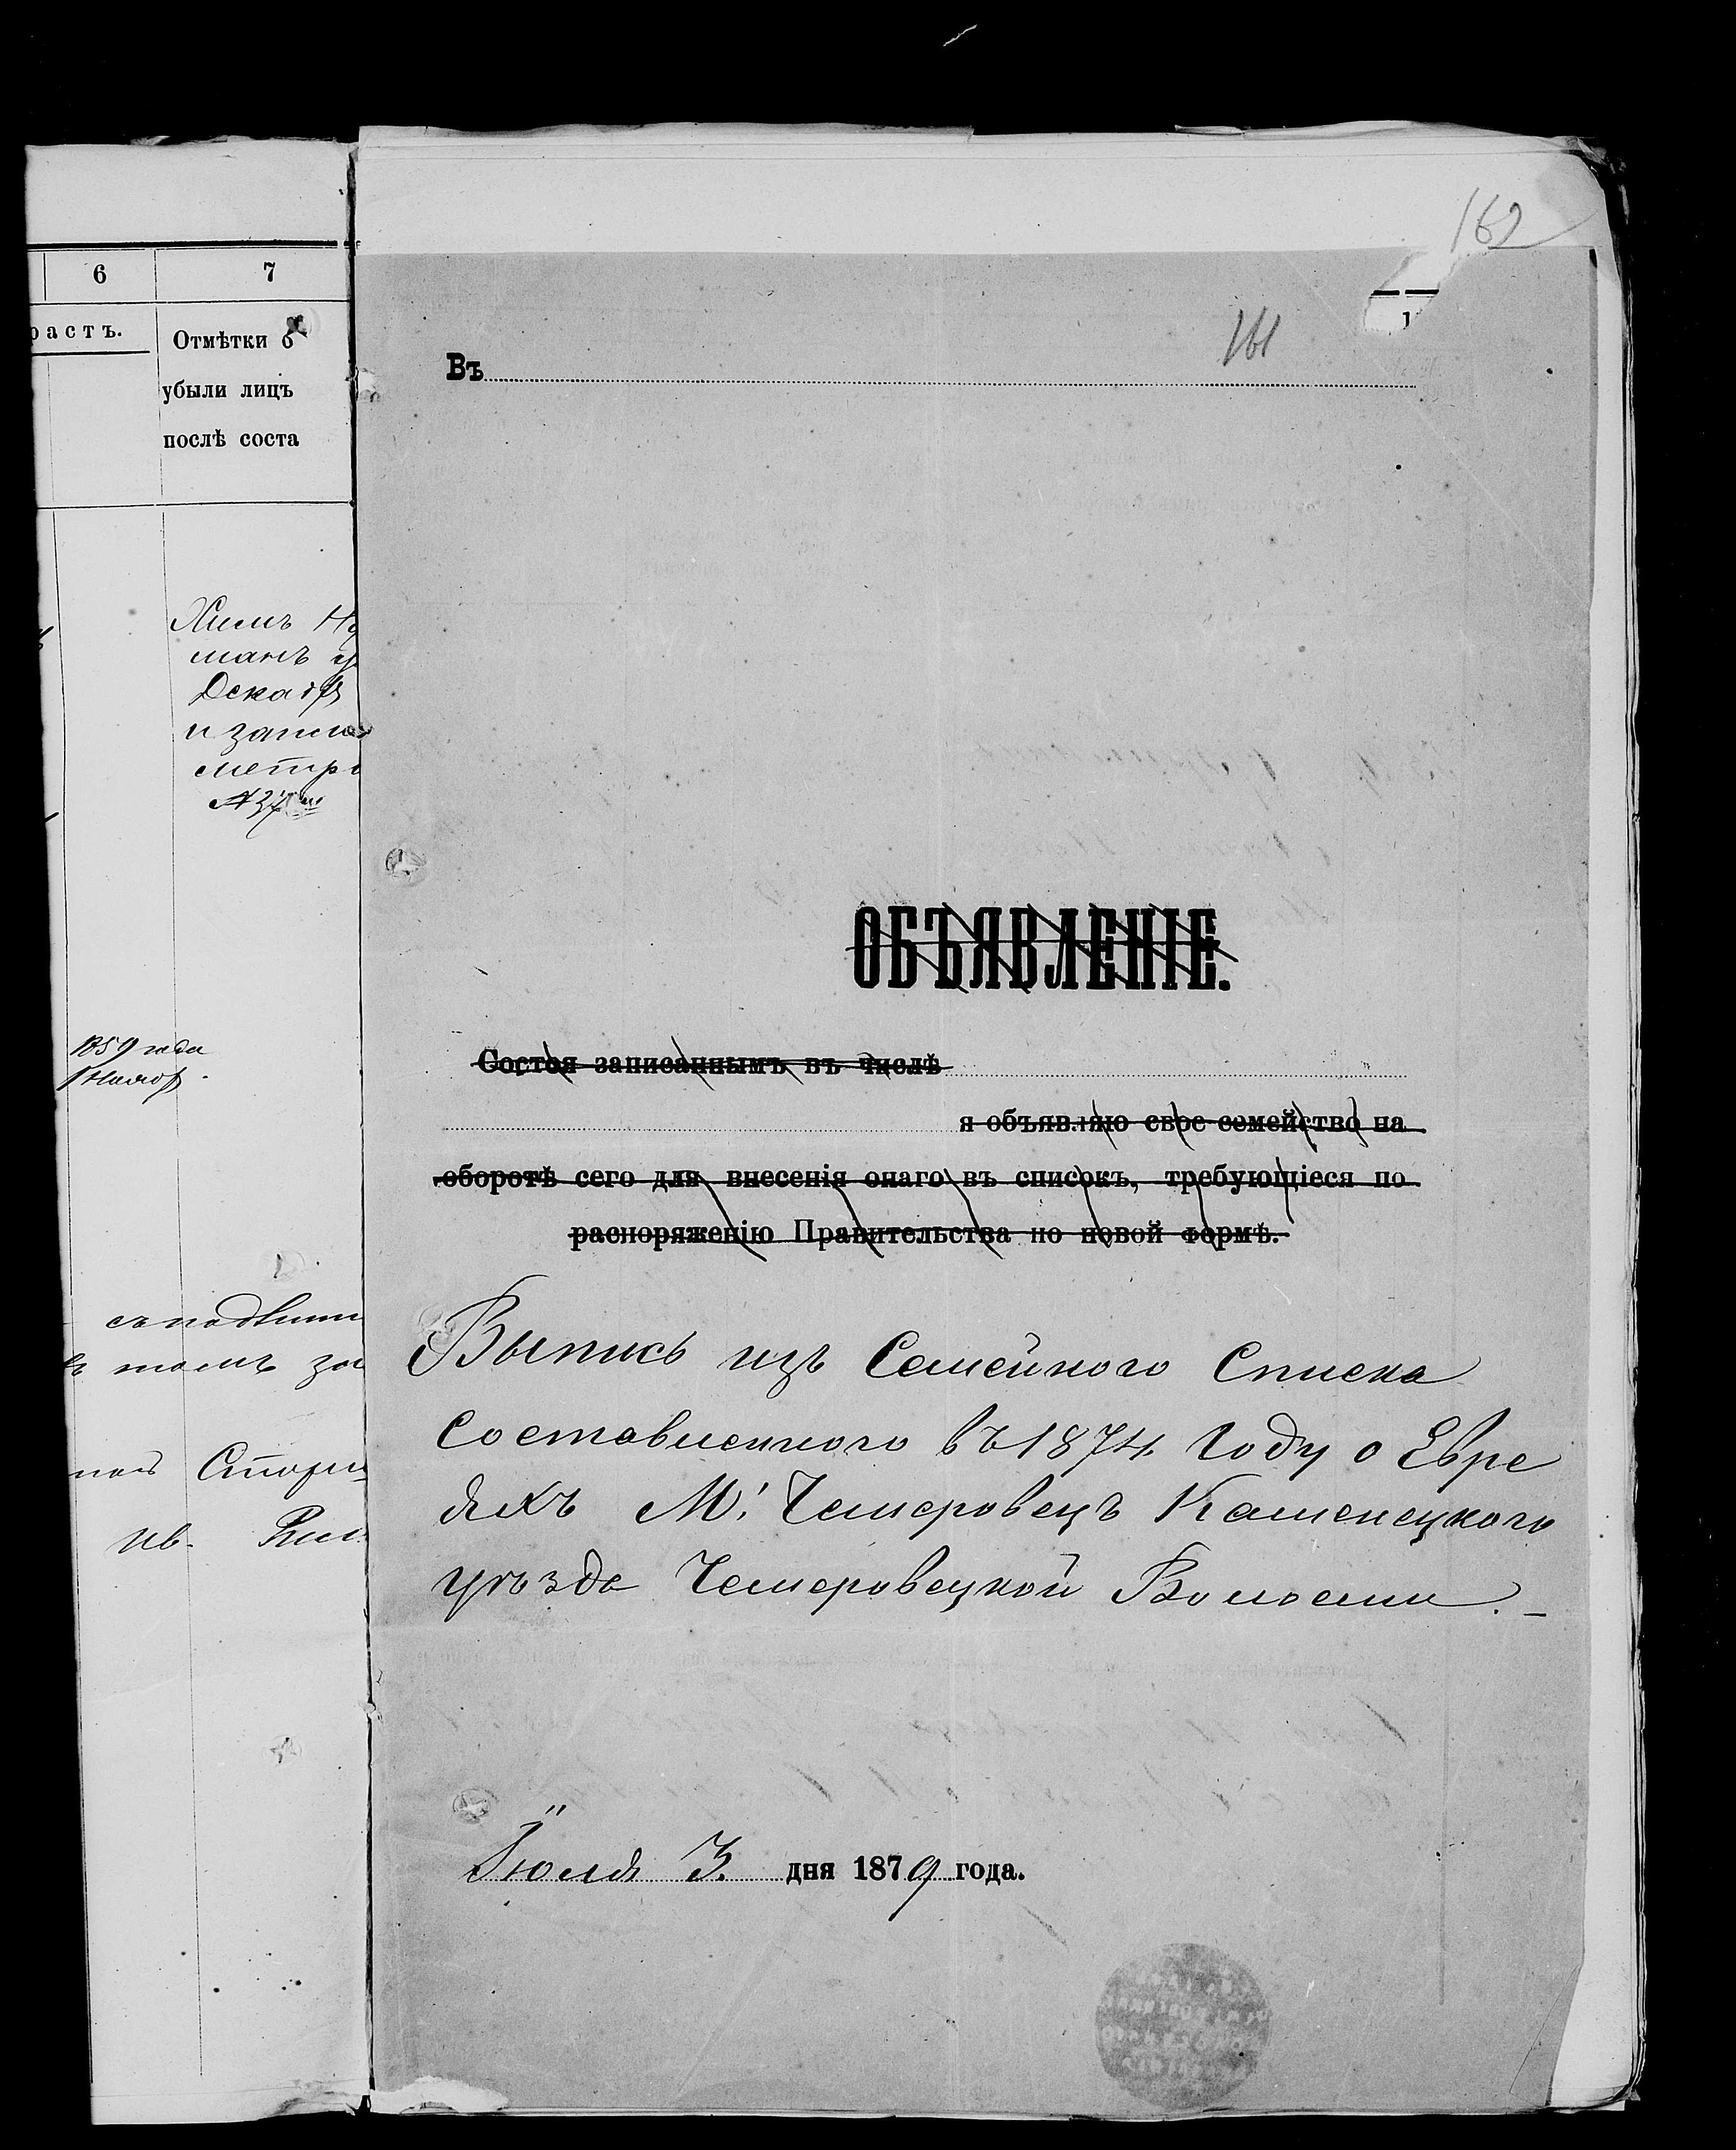 6 7
растъ.
Отмѣтки о
убыли лицъ
послѣ соста
и запис
метри
1859 года
томъ
162
161
Въ
ОБЪЯВЛЕНІЕ.
Состоя записаннымъ въ числѣ
я объявляю свое семейство на
оборотѣ сего для внесенія онаго въ списокъ, требующіеся по
распоряженію Правительства по новой формѣ.
Выпись изъ Семейного Списка
Составленного въ 1874 Году о Евре
яхъ М. Чемеровецъ Каменецкого
уѣзда Чемеровецкой Волости.-
Іюля 3. дня 1879 года.